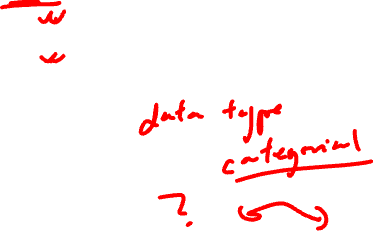 data type
categorical
?